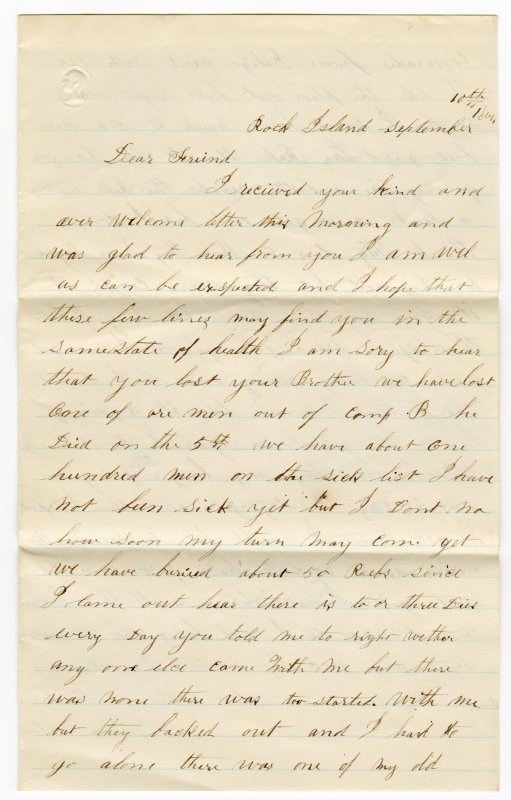 10th 1864
Rock Island September
Dear Friend
I recieved your kind and
aver welcome letter this Morowing and
was glad to hear from you I am wel
as can be exspected and I hope that
these few lines may find you in the
same state of health I am sory to hear
that you lost your Brother we have lost
One of ore men out of Comp B he
Died on the 5th we have about One
hundred men on the sick list I have
Not been Sick yet but I Dont no
how soon my turn may Come yet
we have buried about 50 Rebs since
I Came out hear there is to or three Dies
every Day you told me to right wether
any one else came With me but there
was none there was two started. With me
but they backed out and I had to
go alone there was one of my old